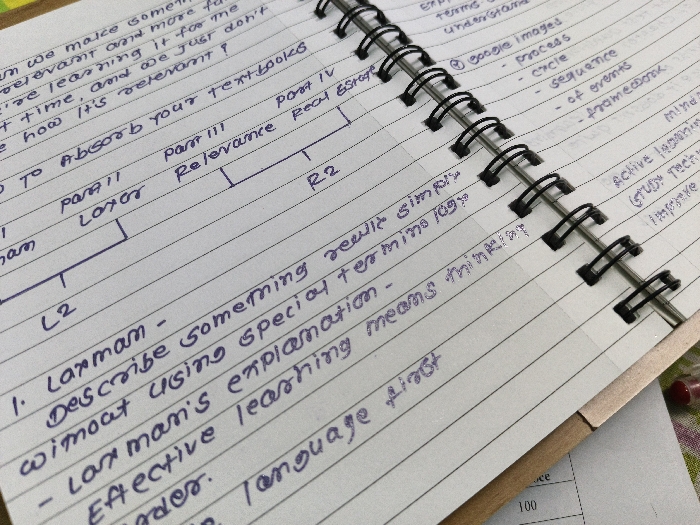 an we make somethin
relevant and more fa
're learning it for the
t time, and we just don't
e how it's relevant?
TO Absorb your textbooks
Part II Part III Part IV
man Laxor Relevance Real Estate
L2 R2
1. Laxman -
Describe something really simply
without using special terminology
- Laxman's explanation -
Effective learning means thinking
order.
language first
terms
understand
④ google images
- process
- circle
- sequence
- of events
- framework.
Active learnin
(study tec
improve
100